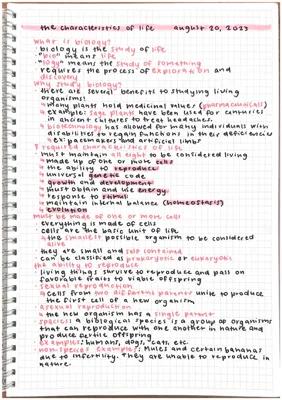 the characteristics of life august 20, 2023
what is biology?
biology is the study of life
"bio" means life
"logy" means the study of something
requires the process of exploration and
discovery
why study biology?
there are several benefits to studying living
organisms!
many plants hold medicinal values (pharmaceuticals)
example: sage plants have been used for centuries
in ancient cultures to treat headaches.
biotechnology has allowed for many individuals with
disabilities to regain functions in their deficiencies
ex: pacemakers and artificial limbs
required characteristics of life
must maintain all eight to be considered living
made up of one or more cells
the ability to reproduce
universal genetic code
growth and development
must obtain and use energy
response to stimuli
maintain internal balance (homeostasis)
evolution
must be made of one or more cells
everything is made of cells
cells are the basic unit of life
the smallest possible organism to be considered
alive
they are small and self contained
can be classified as prokaryotic or eukaryotic
the ability to reproduce
living things survive to reproduce and pass on
favorable traits to viable offspring
sexual reproduction
cells from two different parents unite to produce
the first cell of a new organism
asexual reproduction
the new organism has a single parent
species: a biological species is a group of organisms
that can reproduce with one another in nature and
produce fertile offspring
examples: humans, dogs, cats, etc.
non-species examples: Mules and certain bananas
due to infertility. They are unable to reproduce in
nature.